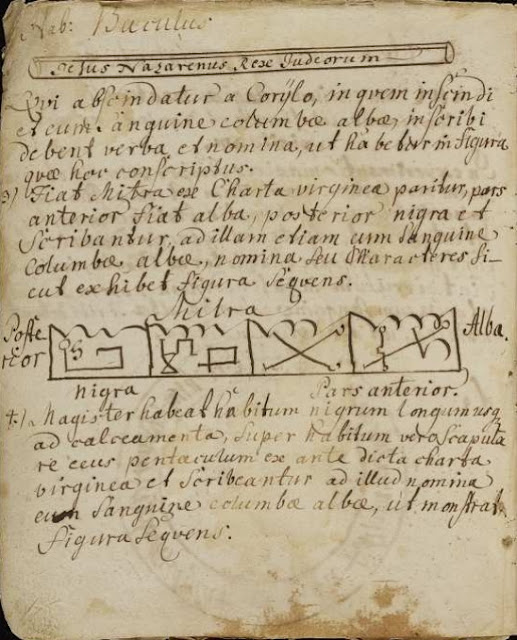 Hab: Baculus
Jesus Nazarenus Rexe Judeorum
Qvi abscindatur a Corÿlo, in qvem inscindi
et cum sanguine columbæ albæ, inscribi
debent verba et nomina, ut habetur in Figura
qvæ hoc conscriptus.
3) Fiat Mitra exe Charta virginea paritur, pars
anterior fiat alba, posterior nigra et
scribantur, ad illam etiam cum sanguine
Columbæ albæ, nomina seu characteres si-
cut exhibet figura seqvens.
Mitra
Poste
rior
Alba.
nigra
Pars anterior.
4.) Magister habeat habitum nigrum longum usq
ad calceamenta, super habitum vero scapula
re ceus pentaculum ex ante dicta charta
virginea et scribeantur ad illud nomina
cum sanguine columbæ albæ, ut monstrat
figura seqvens.